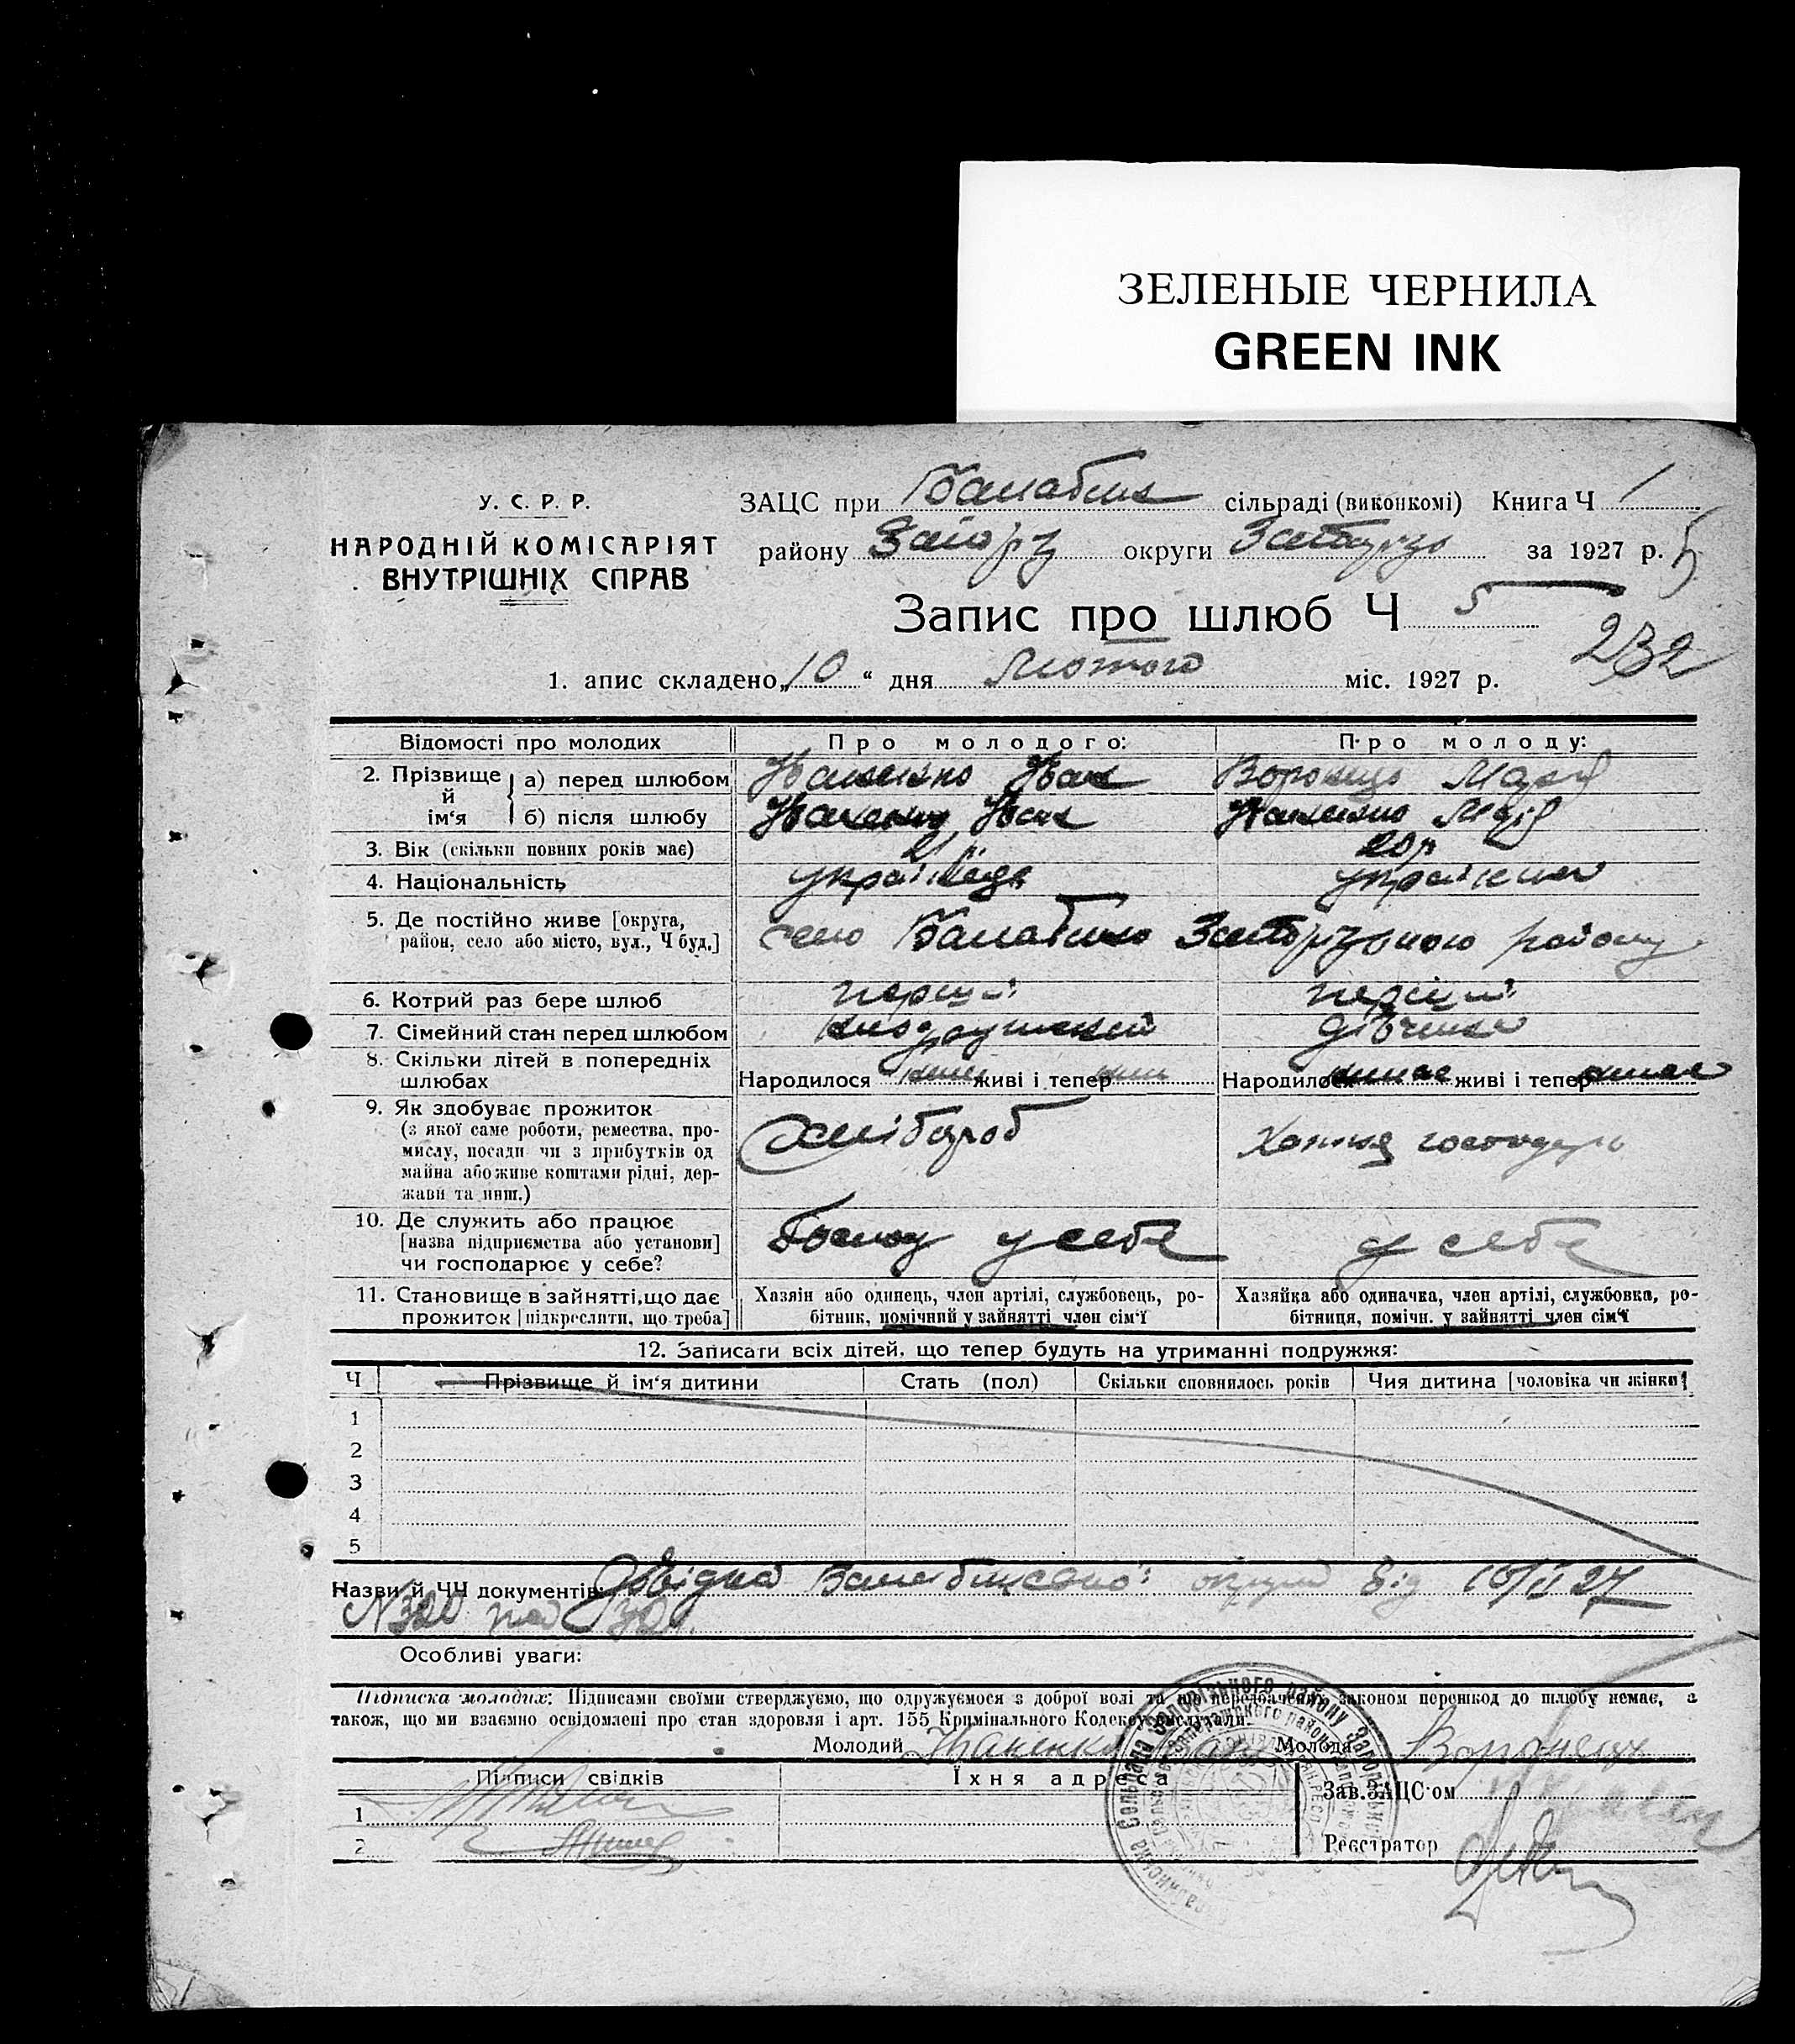 ЗЕЛЕНЫЕ ЧЕРНИЛА
GREEN INK
У. С. Р. Р.
НАРОДНІЙ КОМІСАРІЯТ
ВНУТРІШНІХ СПРАВ
ЗАЦС при сільраді (виконкомі) Книга Ч 1
району округи за 1927 р. 5
Запис про шлюб Ч 5
232
1. апис складено „10“ дня Лютого міс. 1927 р.
Відомості про молодих Про молодого: Про молоду:
2. Прізвище й ім‘я а) перед шлюбом Іван Воронець Марія
б) після шлюбу Іван Марія
3. Вік (скільки повних років має) 21 20 р
4. Національність українець українка
5. Де постійно живе [округа, район, село або місто, вул., Ч буд.] село Балабино Запорізького району
6. Котрий раз бере шлюб перший перший
7. Сімейний стан перед шлюбом дівчина
8. Скільки дітей в попередніх шлюбах Народилося живі і тепер Народилося немає живі і тепер немає
9. Як здобуває прожиток
(з якої саме роботи, ремества, про-
мислу, посади чи з прибутків од
майна або живе коштами рідні, дер-
жави та инш.)
Хлібороб
10. Де служить або працює
[назва підприємства або установи]
чи господарює у себе?
у себе у себе
11. Становище в зайнятті, що дає
прожиток [підкреслити, що треба]
Хазяїн або одинець, член артілі, службовець, ро-
бітник, помічний у зайнятті член сім‘ї
Хазяйка або одиначка, член артілі, службовка, ро-
бітниця, помічн. у зайнятті член сім‘ї
12. Записати всіх дітей, що тепер будуть на утриманні подружжя:
Ч Прізвище й ім‘я дитини Стать (пол) Скільки сповнилось років Чия дитина [чоловіка чи жінки]
1
2
3
4
5
Назви й ЧЧ документів: від 10/II 27
Особливі уваги:
Підписка молодих: Підписами своїми стверджуємо, що одружуємося з доброї волі та що передбачених законом перешкод до шлюбу немає, а
також, що ми взаємно освідомлені про стан здоров‘я і арт. 155 Кримінального Кодексу вислухали.
Молодий Молода Воронець
Підписи свідків Їхня адреса Зав. ЗАЦС‘ом
1
2 Реєстратор